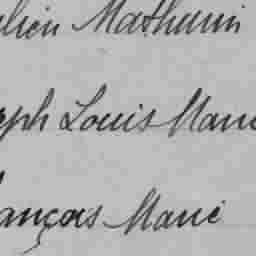 lien Mathurin
eph Louis Marie
ançois Marie